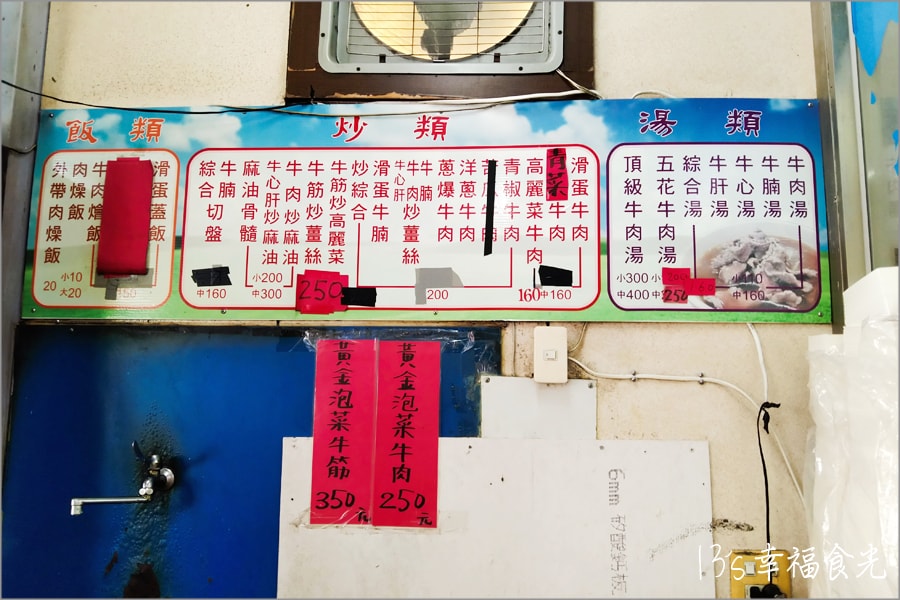 飯類
外帶肉燥飯
20
肉燥飯
小10
大20
牛肉燴飯
滑蛋
蓋飯
350
炒類
綜合切盤
牛腩
中160
麻油骨髓
牛心肝炒麻油
牛肉炒麻油
小200
中300
牛筋炒薑絲
牛筋炒高麗菜
250
炒綜合
滑蛋牛腩
牛心肝
牛腩
牛肉炒薑絲
200
蔥爆牛肉
洋蔥牛肉
苦瓜牛肉
青椒牛肉
高麗菜牛肉
160
青菜牛肉
滑蛋牛肉
中160
湯類
頂級牛肉湯
小300
中400
五花牛肉湯
小200
中250
綜合湯
160
牛肝湯
牛心湯
牛腩湯
牛肉湯
中160
黃金泡菜牛筋
350元
黃金泡菜牛肉
250元
6mm
13's幸福食光